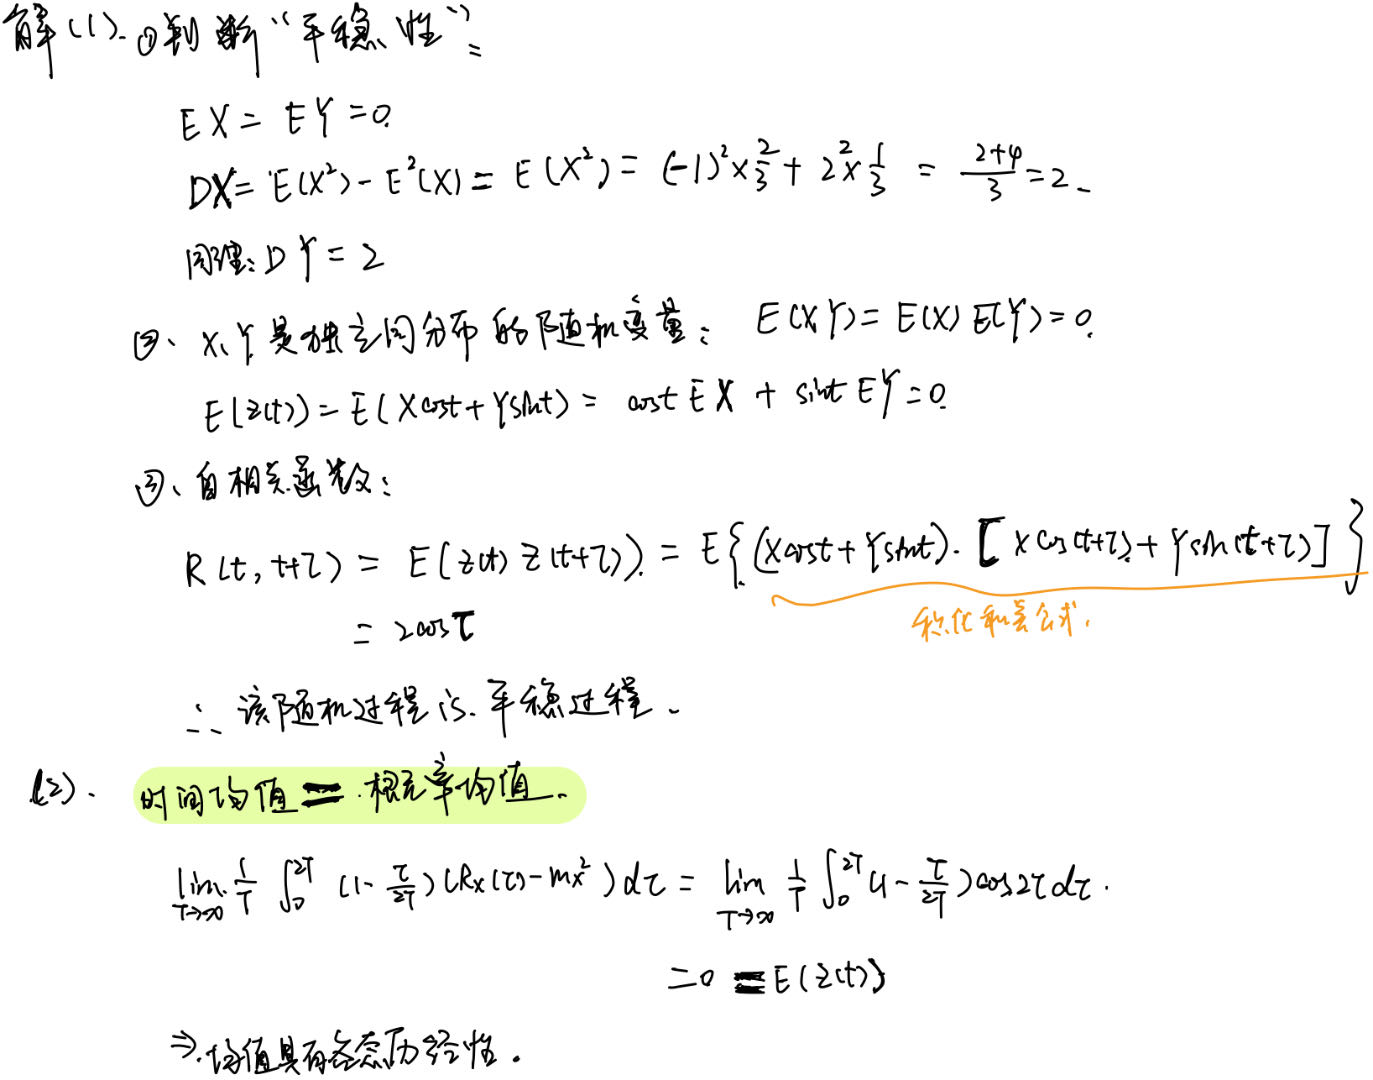 解(1). ①判断“平稳性”:
EX = EY = 0.
DX = E(X²) - E²(X) = E(X²) = (-1)² × 2/3 + 2² × 1/3 = (2+4)/3 = 2.
同理: DY = 2
②、X、Y是独立同分布的随机变量: E(XY) = E(X)E(Y) = 0.
E(z(t)) = E(Xcost + Ysint) = cost EX + sint EY = 0.
③、自相关函数:
R(t, t+τ) = E(z(t) z(t+τ)) = E{(Xcost + Ysint)·[Xcos(t+τ) + Ysin(t+τ)]}
= 2cosτ
积化和差公式.
∴ 该随机过程is.平稳过程.
(2). 时间均值 = 概率均值.
lim T→∞ 1/T ∫₀^2T (1 - τ/2T)(Rx(τ) - mx²)dτ = lim T→∞ 1/T ∫₀^2T (1 - τ/2T)cos2τdτ.
= 0 = E(z(t))
⇒.均值具有各态历经性.